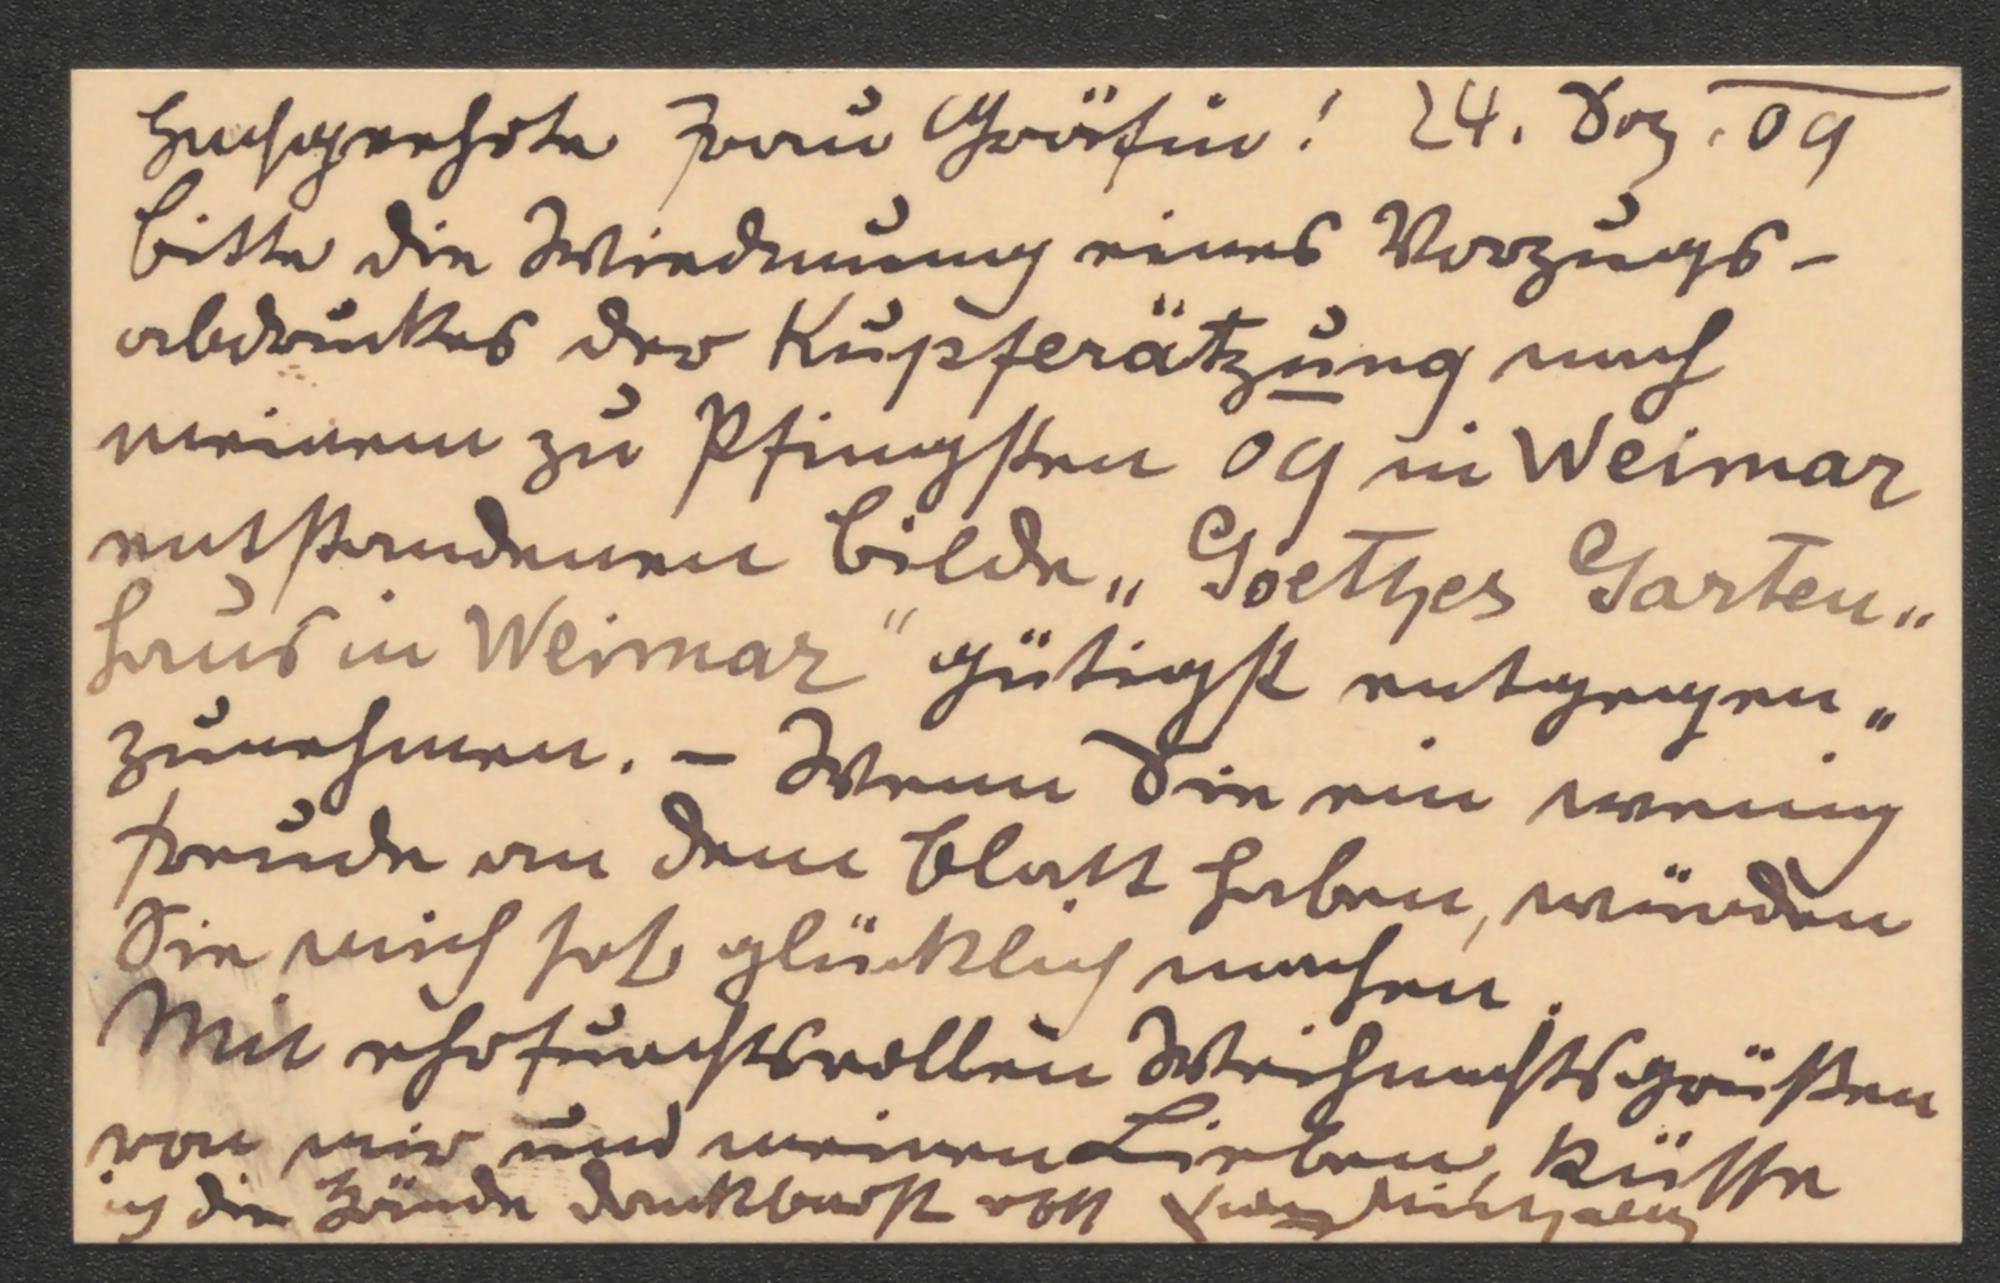 Hochgeehrte Frau Gräfin! 24. Dez. 09
bitte die Wiedmung eines Vorzugs-
abdruckes der Kupferätzung nach
meinem zu Pfingsten 09 in Weimar
entstandenen Bilde „Goethes Garten„
haus in Weimar" gütigst entgegen„
zunehmen. – Wenn Sie ein wenig
Freude an dem Blatt haben, würden
Sie mich sehr glücklich machen.
Mit ehrfurchtsvollen Weihnachtsgrüßen
von mir und meinen Lieben, küsse
ich die Hände dankbarst